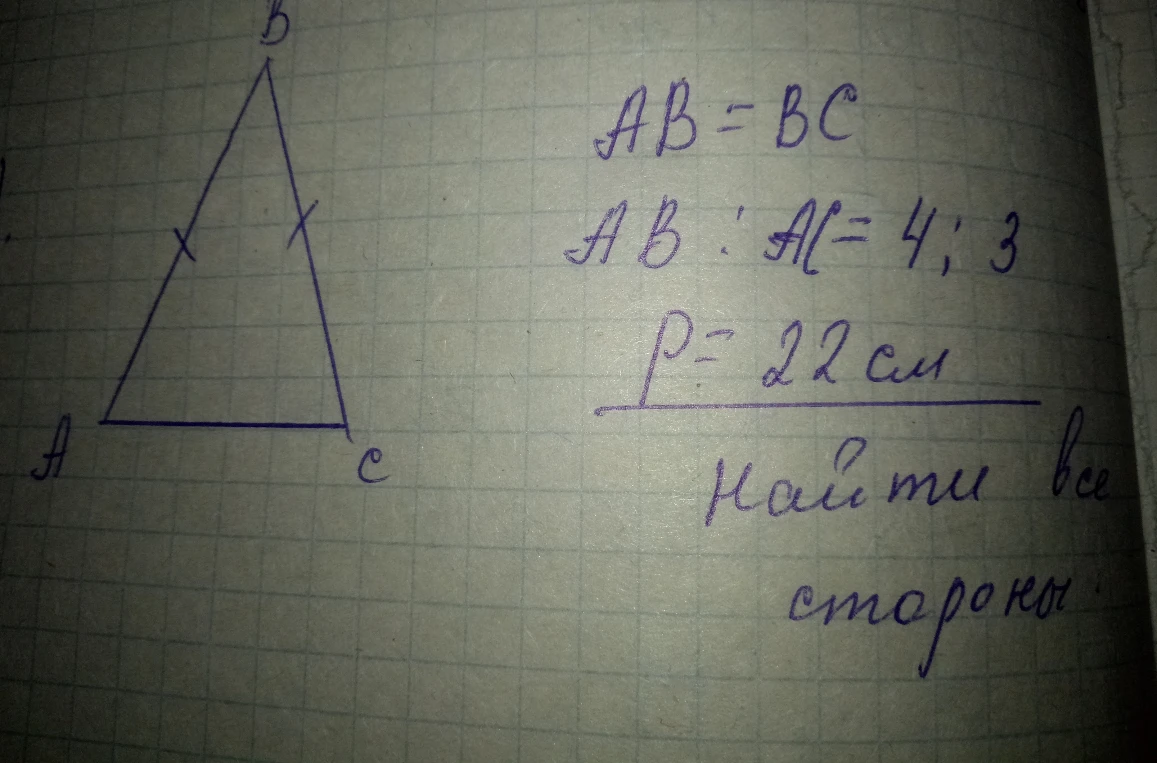 B
AB = BC
AB : AC = 4 : 3
P = 22 см
A
C
Найти все
стороны.